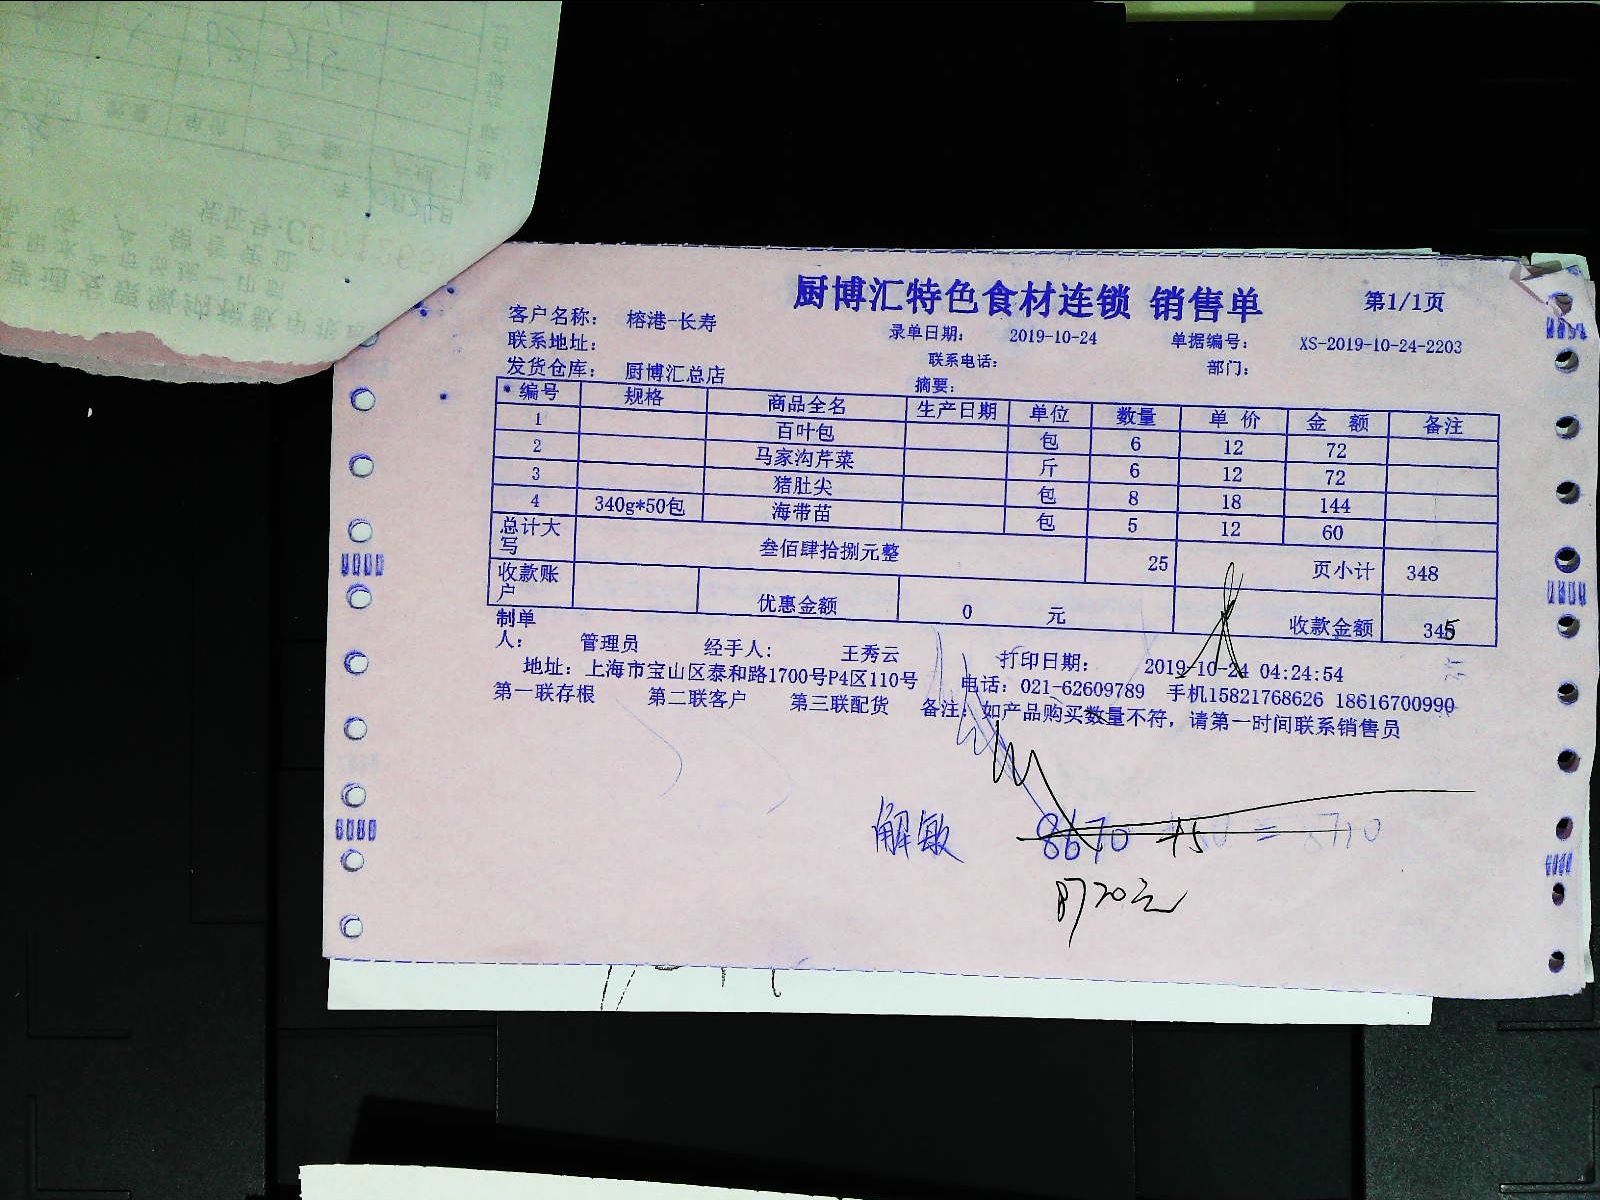 厨博汇特色食材连锁 销售单 第1/1页
客户名称： 榕港-长寿 录单日期： 2019-10-24 单据编号： XS-2019-10-24-2203
联系地址： 联系电话： 部门：
发货仓库： 厨博汇总店 摘要：
编号 规格 商品全名 生产日期 单位 数量 单 价 金 额 备注
1 百叶包 包 6 12 72
2 马家沟芹菜 斤 6 12 72
3 猪肚尖 包 8 18 144
4 340g*50包 海带苗 包 5 12 60
总计大写 叁佰肆拾捌元整 25 页小计 348
收款账户 优惠金额 0 元 收款金额 345
制单人： 管理员 经手人： 王秀云 打印日期： 2019-10-24 04:24:54
地址：上海市宝山区泰和路1700号P4区110号 电话：021-62609789 手机15821768626 18616700990
第一联存根 第二联客户 第三联配货 备注：如产品购买数量不符，请第一时间联系销售员
解敏 8670
8720元